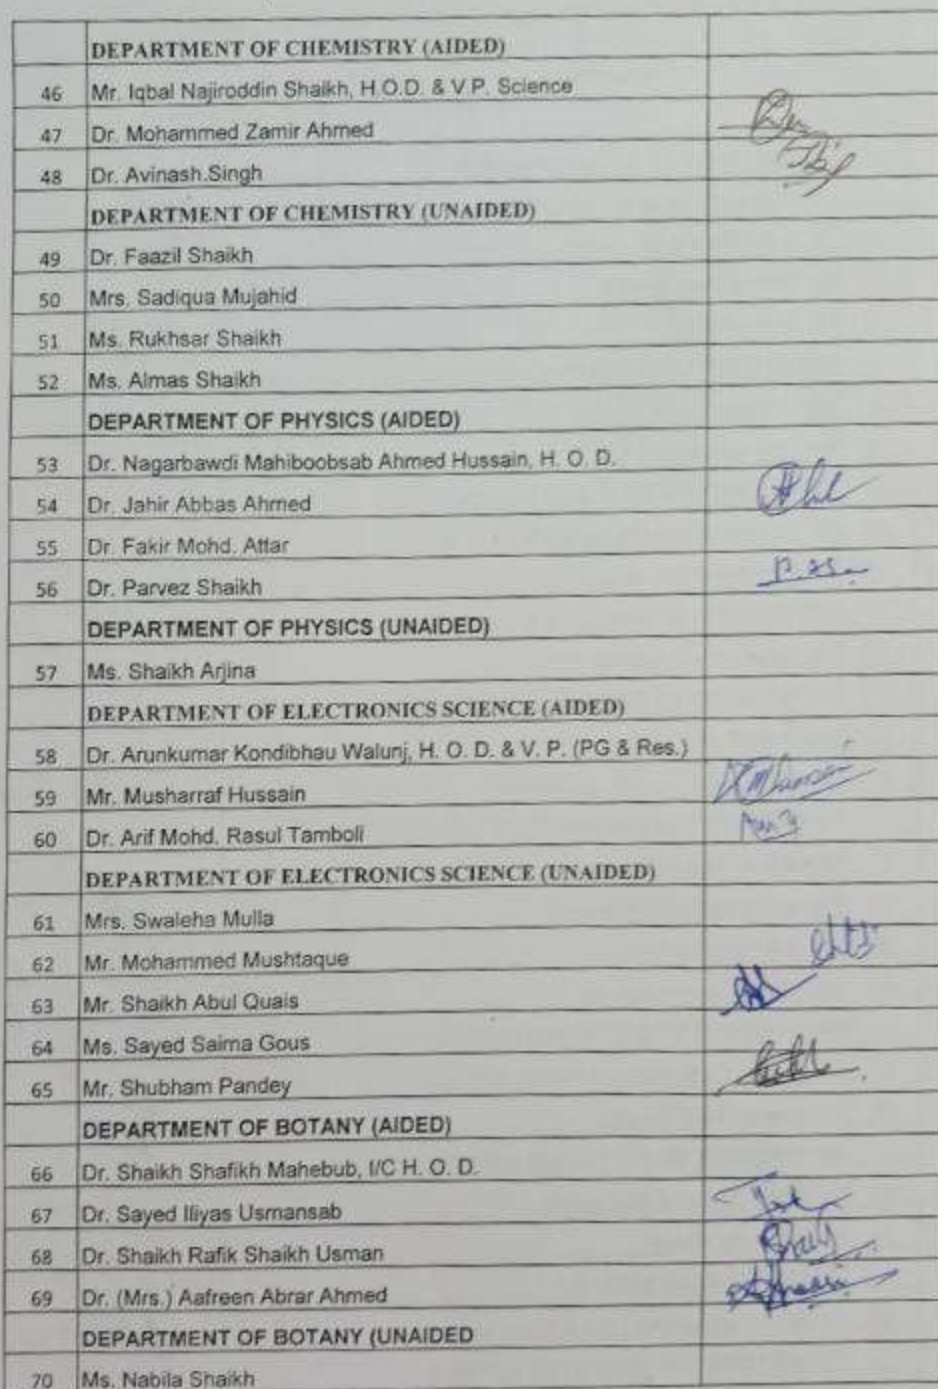 DEPARTMENT OF CHEMISTRY (AIDED)
46 Mr. Iqbal Najiroddin Shaikh, H.O.D. & V.P. Science
47 Dr. Mohammed Zamir Ahmed
48 Dr. Avinash.Singh
DEPARTMENT OF CHEMISTRY (UNAIDED)
49 Dr. Faazil Shaikh
50 Mrs. Sadiqua Mujahid
51 Ms. Rukhsar Shaikh
52 Ms. Almas Shaikh
DEPARTMENT OF PHYSICS (AIDED)
53 Dr. Nagarbawdi Mahiboobsab Ahmed Hussain, H. O. D.
54 Dr. Jahir Abbas Ahmed
55 Dr. Fakir Mohd. Attar
56 Dr. Parvez Shaikh
DEPARTMENT OF PHYSICS (UNAIDED)
57 Ms. Shaikh Arjina
DEPARTMENT OF ELECTRONICS SCIENCE (AIDED)
58 Dr. Arunkumar Kondibhau Walunj, H. O. D. & V. P. (PG & Res.)
59 Mr. Musharraf Hussain
60 Dr. Arif Mohd. Rasul Tamboli
DEPARTMENT OF ELECTRONICS SCIENCE (UNAIDED)
61 Mrs. Swaleha Mulla
62 Mr. Mohammed Mushtaque
63 Mr. Shaikh Abul Quais
64 Ms. Sayed Saima Gous
65 Mr. Shubham Pandey
DEPARTMENT OF BOTANY (AIDED)
66 Dr. Shaikh Shafikh Mahebub, I/C H. O. D.
67 Dr. Sayed Iliyas Usmansab
68 Dr. Shaikh Rafik Shaikh Usman
69 Dr. (Mrs.) Aafreen Abrar Ahmed
DEPARTMENT OF BOTANY (UNAIDED
70 Ms. Nabila Shaikh